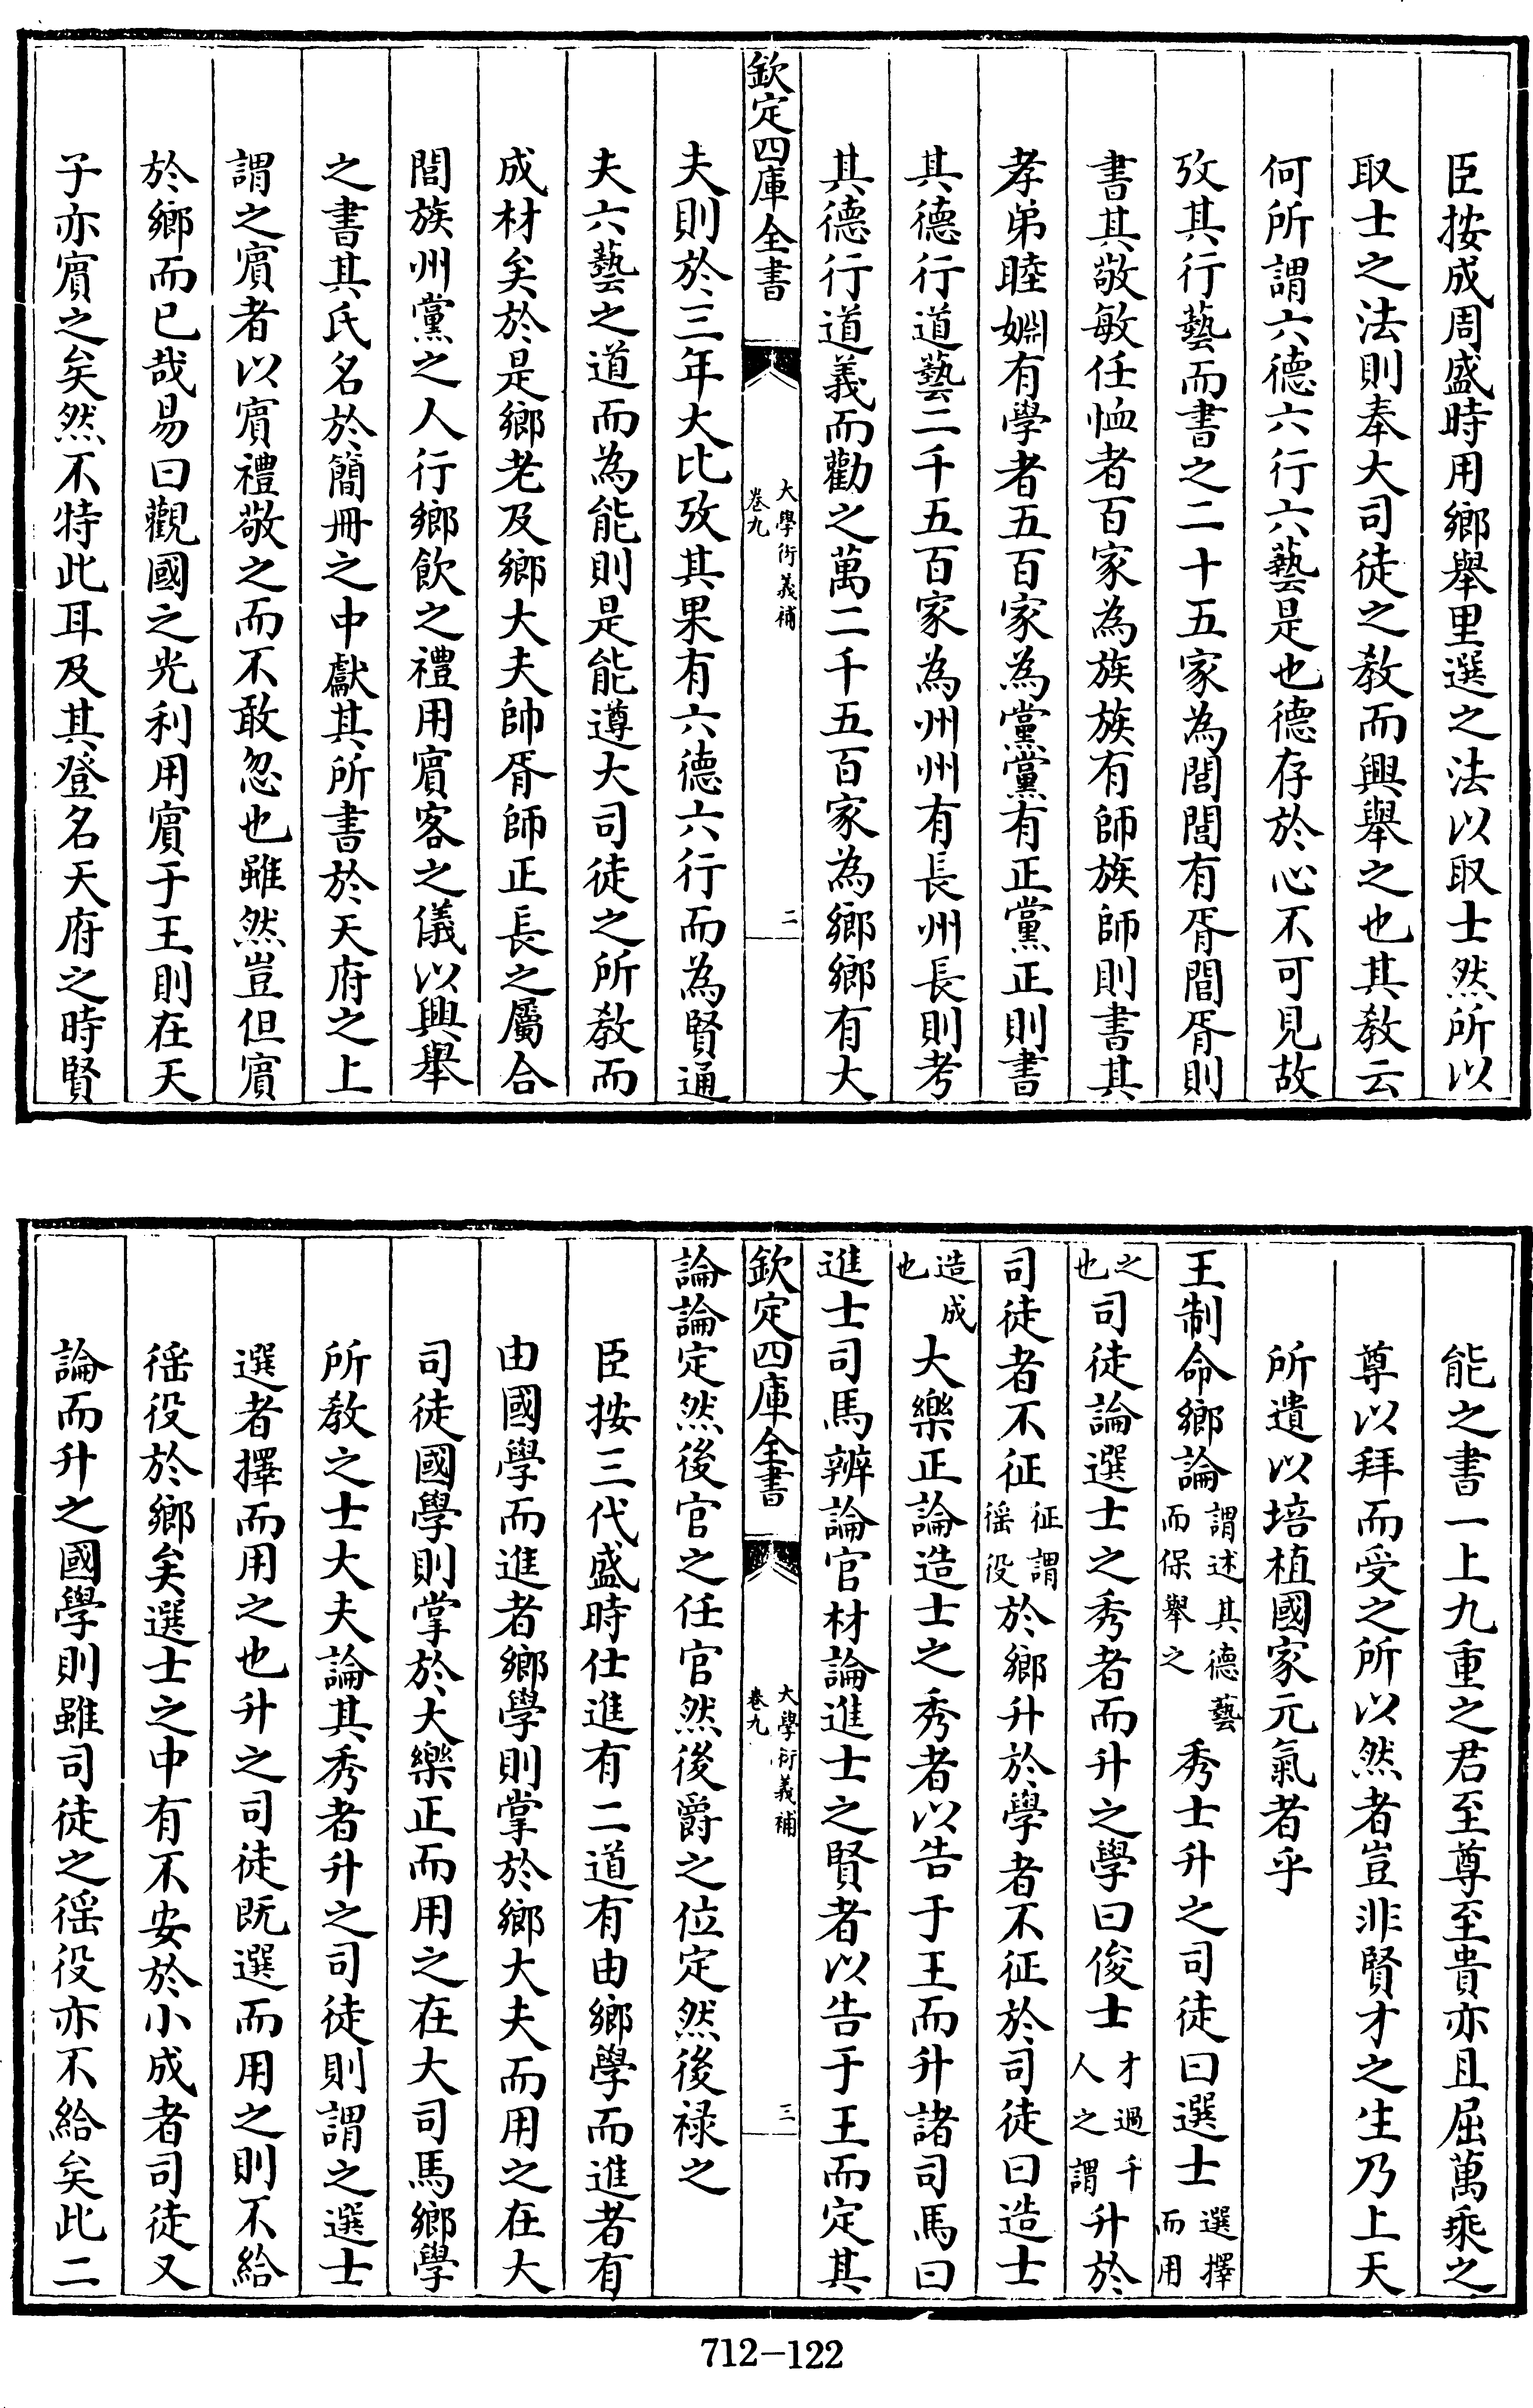 臣按成周盛時用鄉舉里選之法以取士然所以
取士之法則奉大司徒之教而興舉之也其教云
何所謂六德六行六藝是也德存於心不可見故
攷其行藝而書之二十五家為閭閭有胥閭胥則
書其敬敏任恤者百家為族族有師族師則書其
孝弟睦婣有學者五百家為黨黨有正黨正則書
其德行道藝二千五百家為州州有長州長則考
其德行道義而勸之萬二千五百家為鄉鄉有大
欽定四庫全書
大學衍義補
卷九
二
夫則於三年大比攷其果有六德六行而為賢通
夫六藝之道而為能則是能遵大司徒之所教而
成材矣於是鄉老及鄉大夫帥胥師正長之屬合
閭族州黨之人行鄉飲之禮用賔客之儀以興舉
之書其氏名於簡冊之中獻其所書於天府之上
謂之賔者以賔禮敬之而不敢忽也雖然豈但賔
於鄉而已哉易曰觀國之光利用賔于王則在天
子亦賔之矣然不特此耳及其登名天府之時賢
能之書一上九重之君至尊至貴亦且屈萬乘之
尊以拜而受之所以然者豈非賢才之生乃上天
所遺以培植國家元氣者乎
王制命鄉論謂述其德藝而保舉之秀士升之司徒曰選士選擇而用
之也司徒論選士之秀者而升之學曰俊士才過千人之謂升於
司徒者不征征謂徭役於鄉升於學者不征於司徒曰造士
造成也大樂正論造士之秀者以告于王而升諸司馬曰
進士司馬辨論官材論進士之賢者以告于王而定其
欽定四庫全書
大學衍義補
卷九
三
論論定然後官之任官然後爵之位定然後禄之
臣按三代盛時仕進有二道有由鄉學而進者有
由國學而進者鄉學則掌於鄉大夫而用之在大
司徒國學則掌於大樂正而用之在大司馬鄉學
所教之士大夫論其秀者升之司徒則謂之選士
選者擇而用之也升之司徒既選而用之則不給
徭役於鄉矣選士之中有不安於小成者司徒又
論而升之國學則雖司徒之徭役亦不給矣此二
712-122